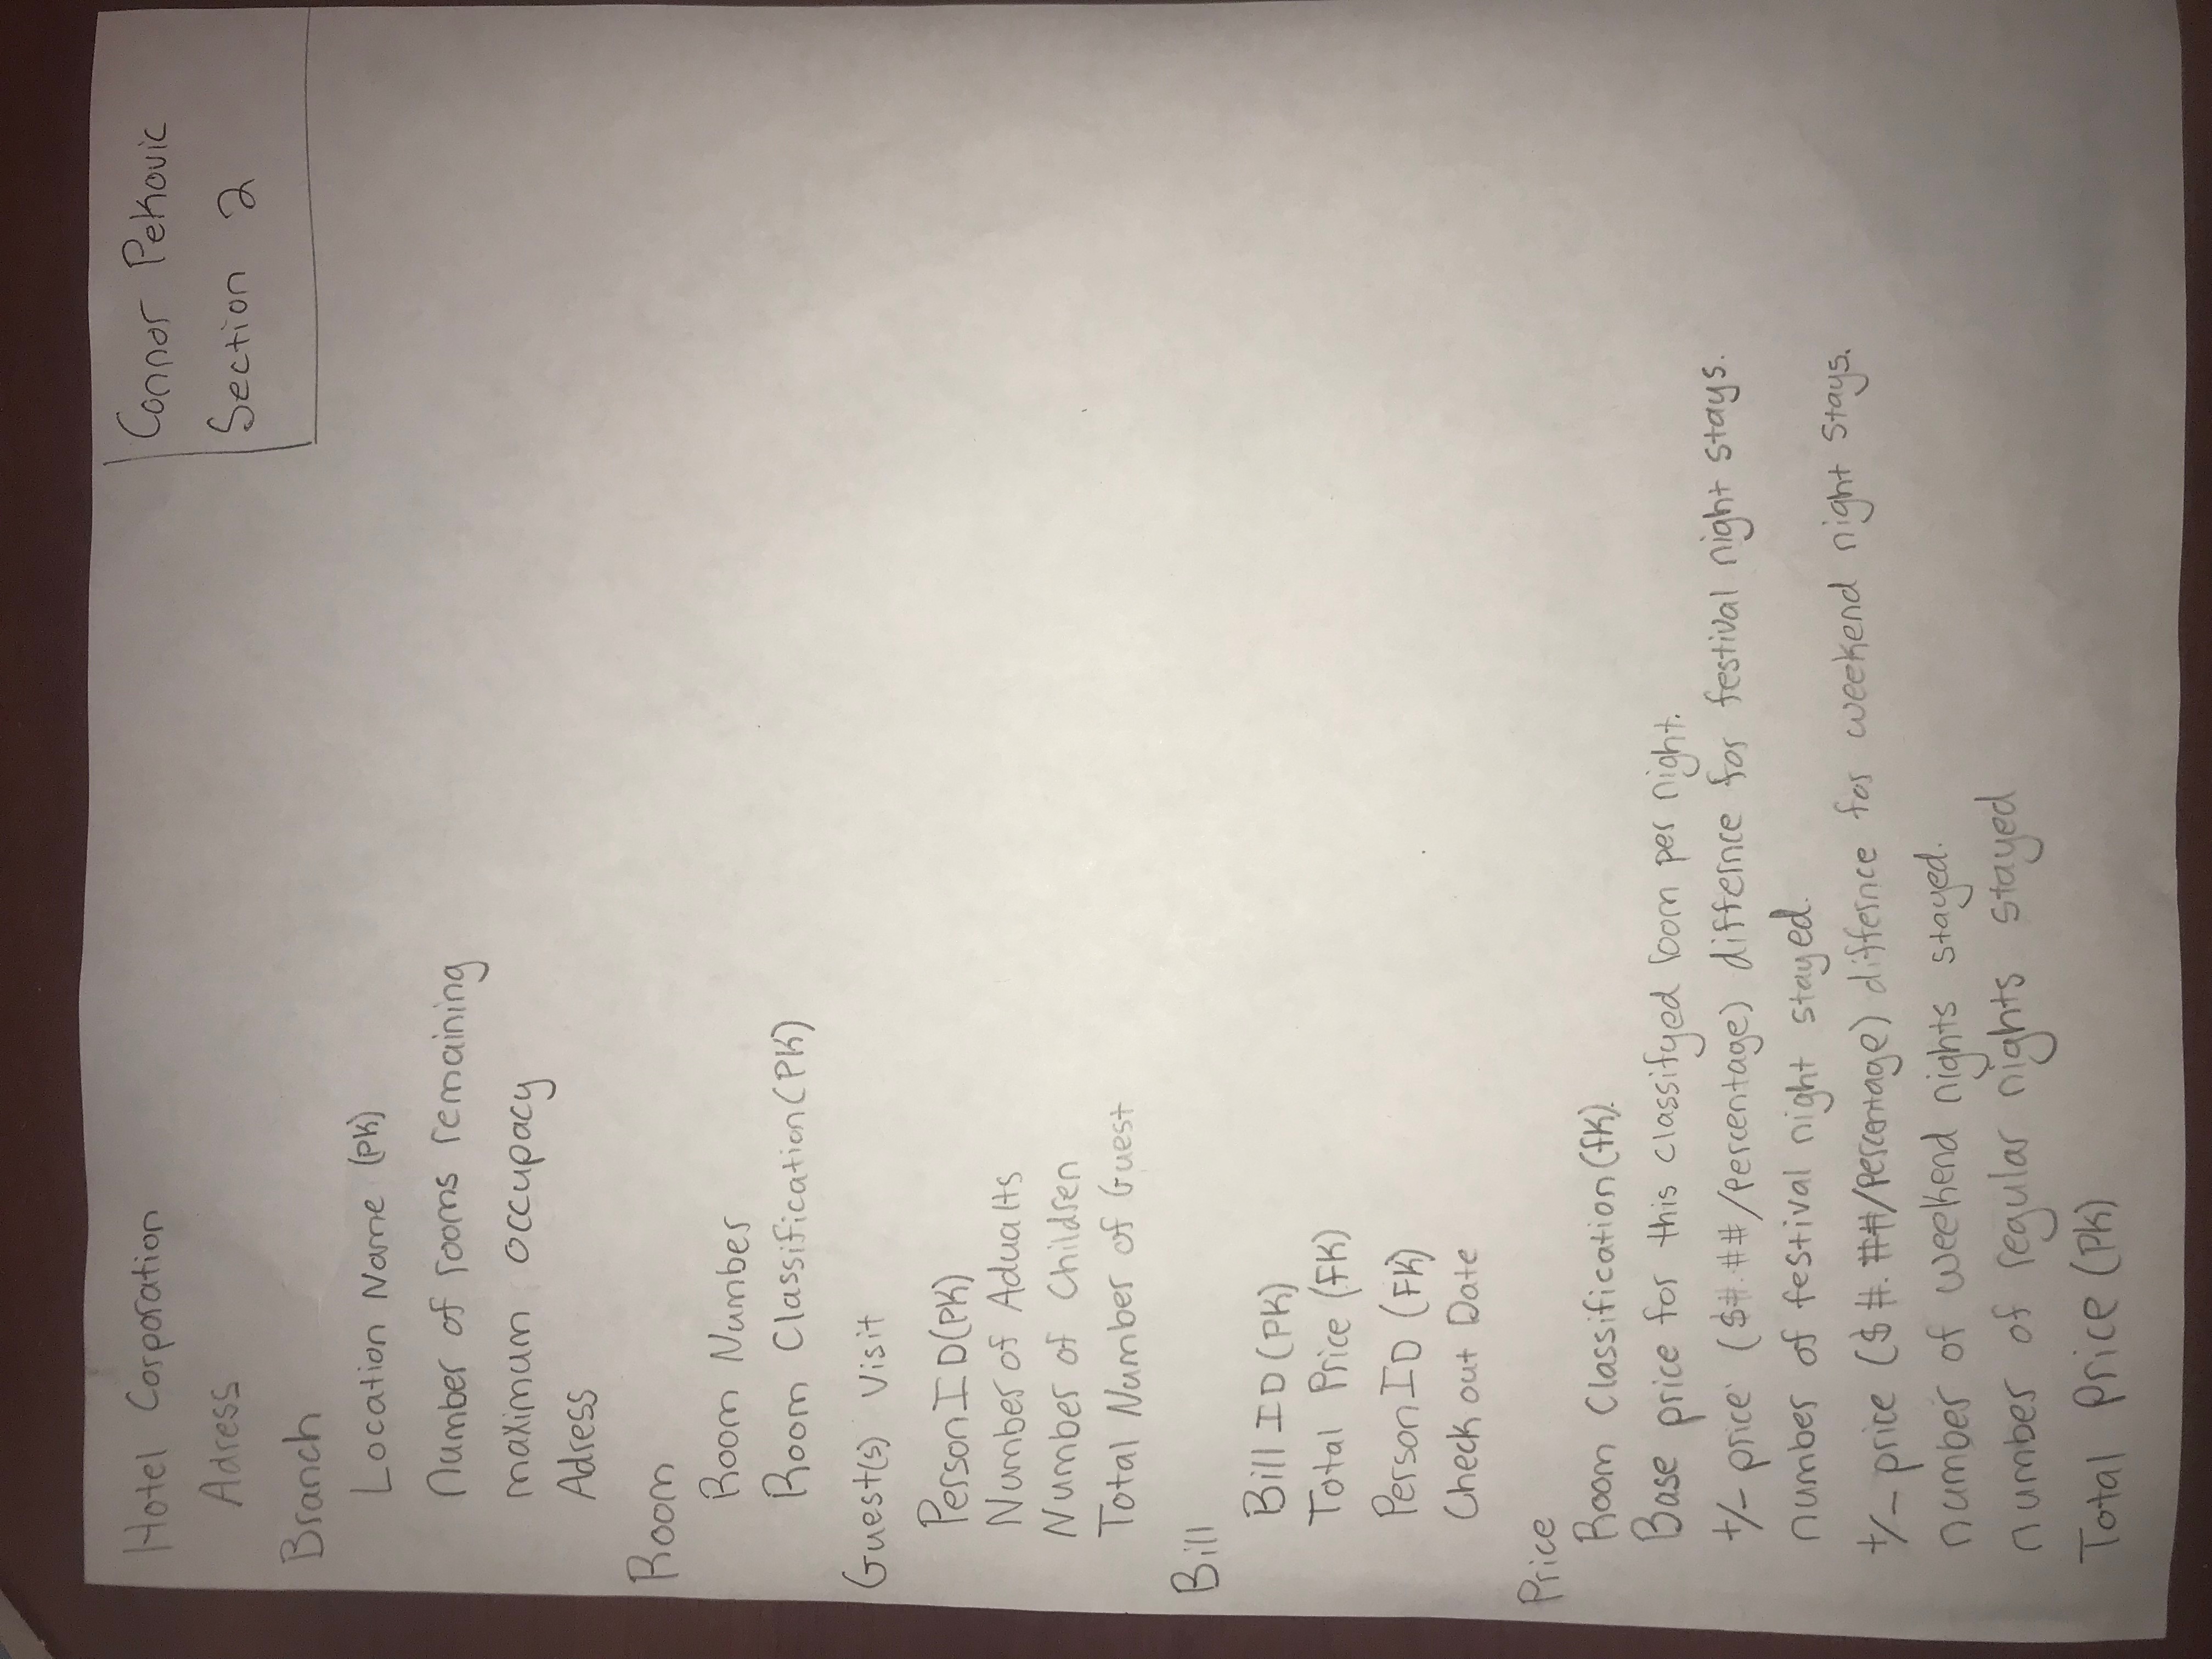 Hotel Corporation
Adress
Connor Pekovic
Section 2
Branch
Location Name (PK)
Number of rooms remaining
maximum occupacy
Adress
Room
Room Number
Room Classification (PK)
Guest(s) Visit
Person ID (PK)
Number of Adualts
Number of Children
Total Number of Guest
Bill
Bill ID (PK)
Total Price (FK)
Person ID (FK)
Check out Date
Price
Room Classification (fK).
Base price for this classifyed room per night.
+/- price ($#.##/percentage) differnce for festival night stays.
number of festival night stayed.
+/- price ($#.##/percentage) differnce for weekend night stays.
number of weekend nights stayed.
number of regular nights stayed
Total Price (PK)